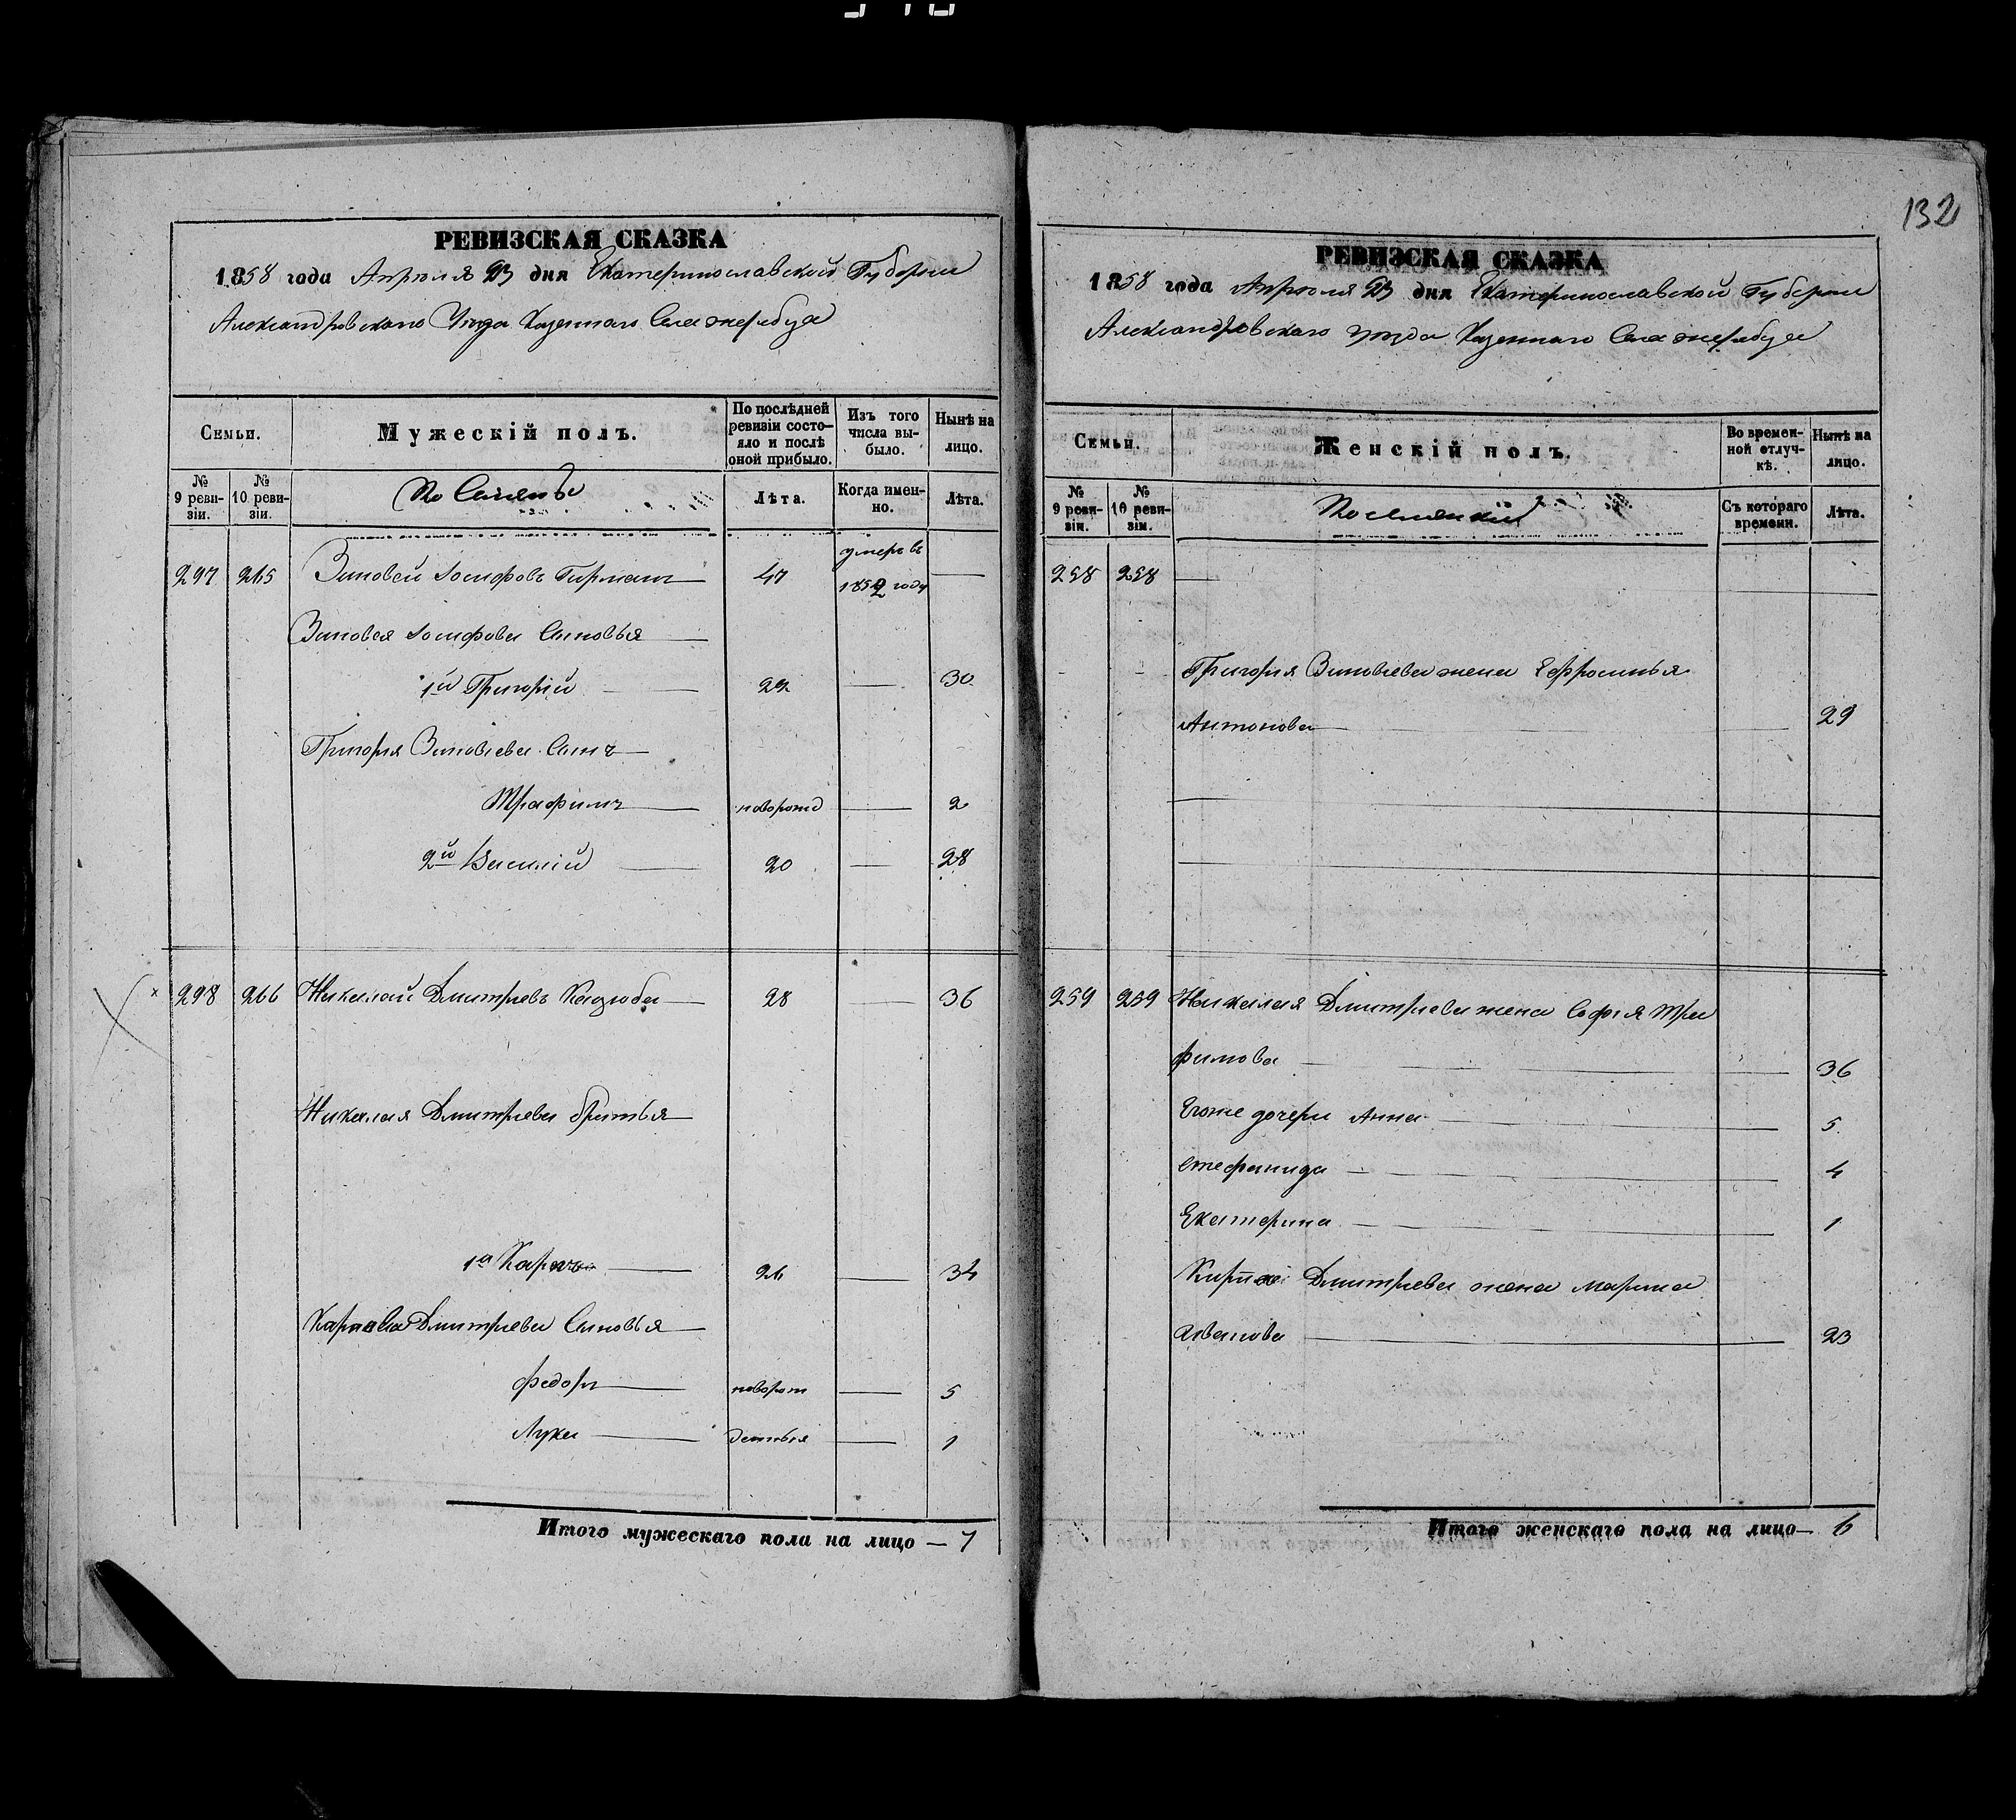 132
РЕВИЗСКАЯ СКАЗКА
1858 года Апреля 23 дня Екатеринославской Губернии
Александровскаго Уезда Казеннаго Села Жеребца
Семьи.
Мужескій полъ.
По послѣдней ревизіи состояло и послѣ оной прибыло.
Изъ того числа выбыло.
Нынѣ на лицо.
№ 9 ревизіи.
№ 10 ревизіи.
Лѣта.
Когда именно.
Лѣта.
297 265 Зиновей Іосифовъ 47 умеръ въ 1852 году —
Зиновея Іосифова Сыновья
1й Григорій — 22 — 30
Григорія Зиновіева Сынъ
Трафимъ — новорожд — 2
2й Василій — 20 — 28
298 266 Николай Дмитріевъ Кадзюба — 28 — 36
Николая Дмитріева братья
1й Карпъ — 26 — 34
Карпа Дмитріева Сыновья
Федоръ — новорож — 5
Лука — 1
Итого мужескаго пола на лицо — 7
РЕВИЗСКАЯ СКАЗКА
1858 года Апреля 23 дня Екатеринославской Губернии
Александровскаго уезда Казеннаго Села Жеребца
Семьи.
Женскій полъ.
Во временной отлучкѣ.
Нынѣ на лицо.
№ 9 ревизіи.
№ 10 ревизіи.
Съ котораго времени.
Лѣта.
258 258 —
Григорія Зиновіева жена Ефросинья
Антонова — 29
259 259 Николая Дмитріева жена Софія Тра
фимова — 36
Егоже дочери Анна — 5
Стефанида — 4
Екатерина — 1
Дмитріева жена Марина
Иванова — 23
Итого женскаго пола на лицо — 6